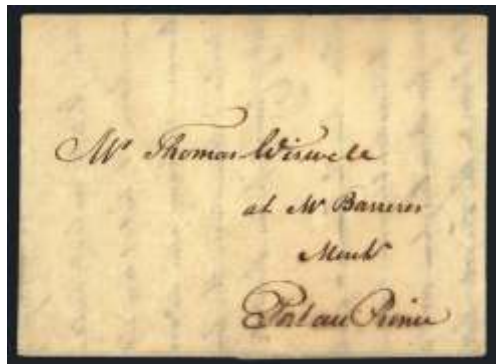 Mr Thomas Wiswell
at Mr Barreres
Mercht
Port au Prince